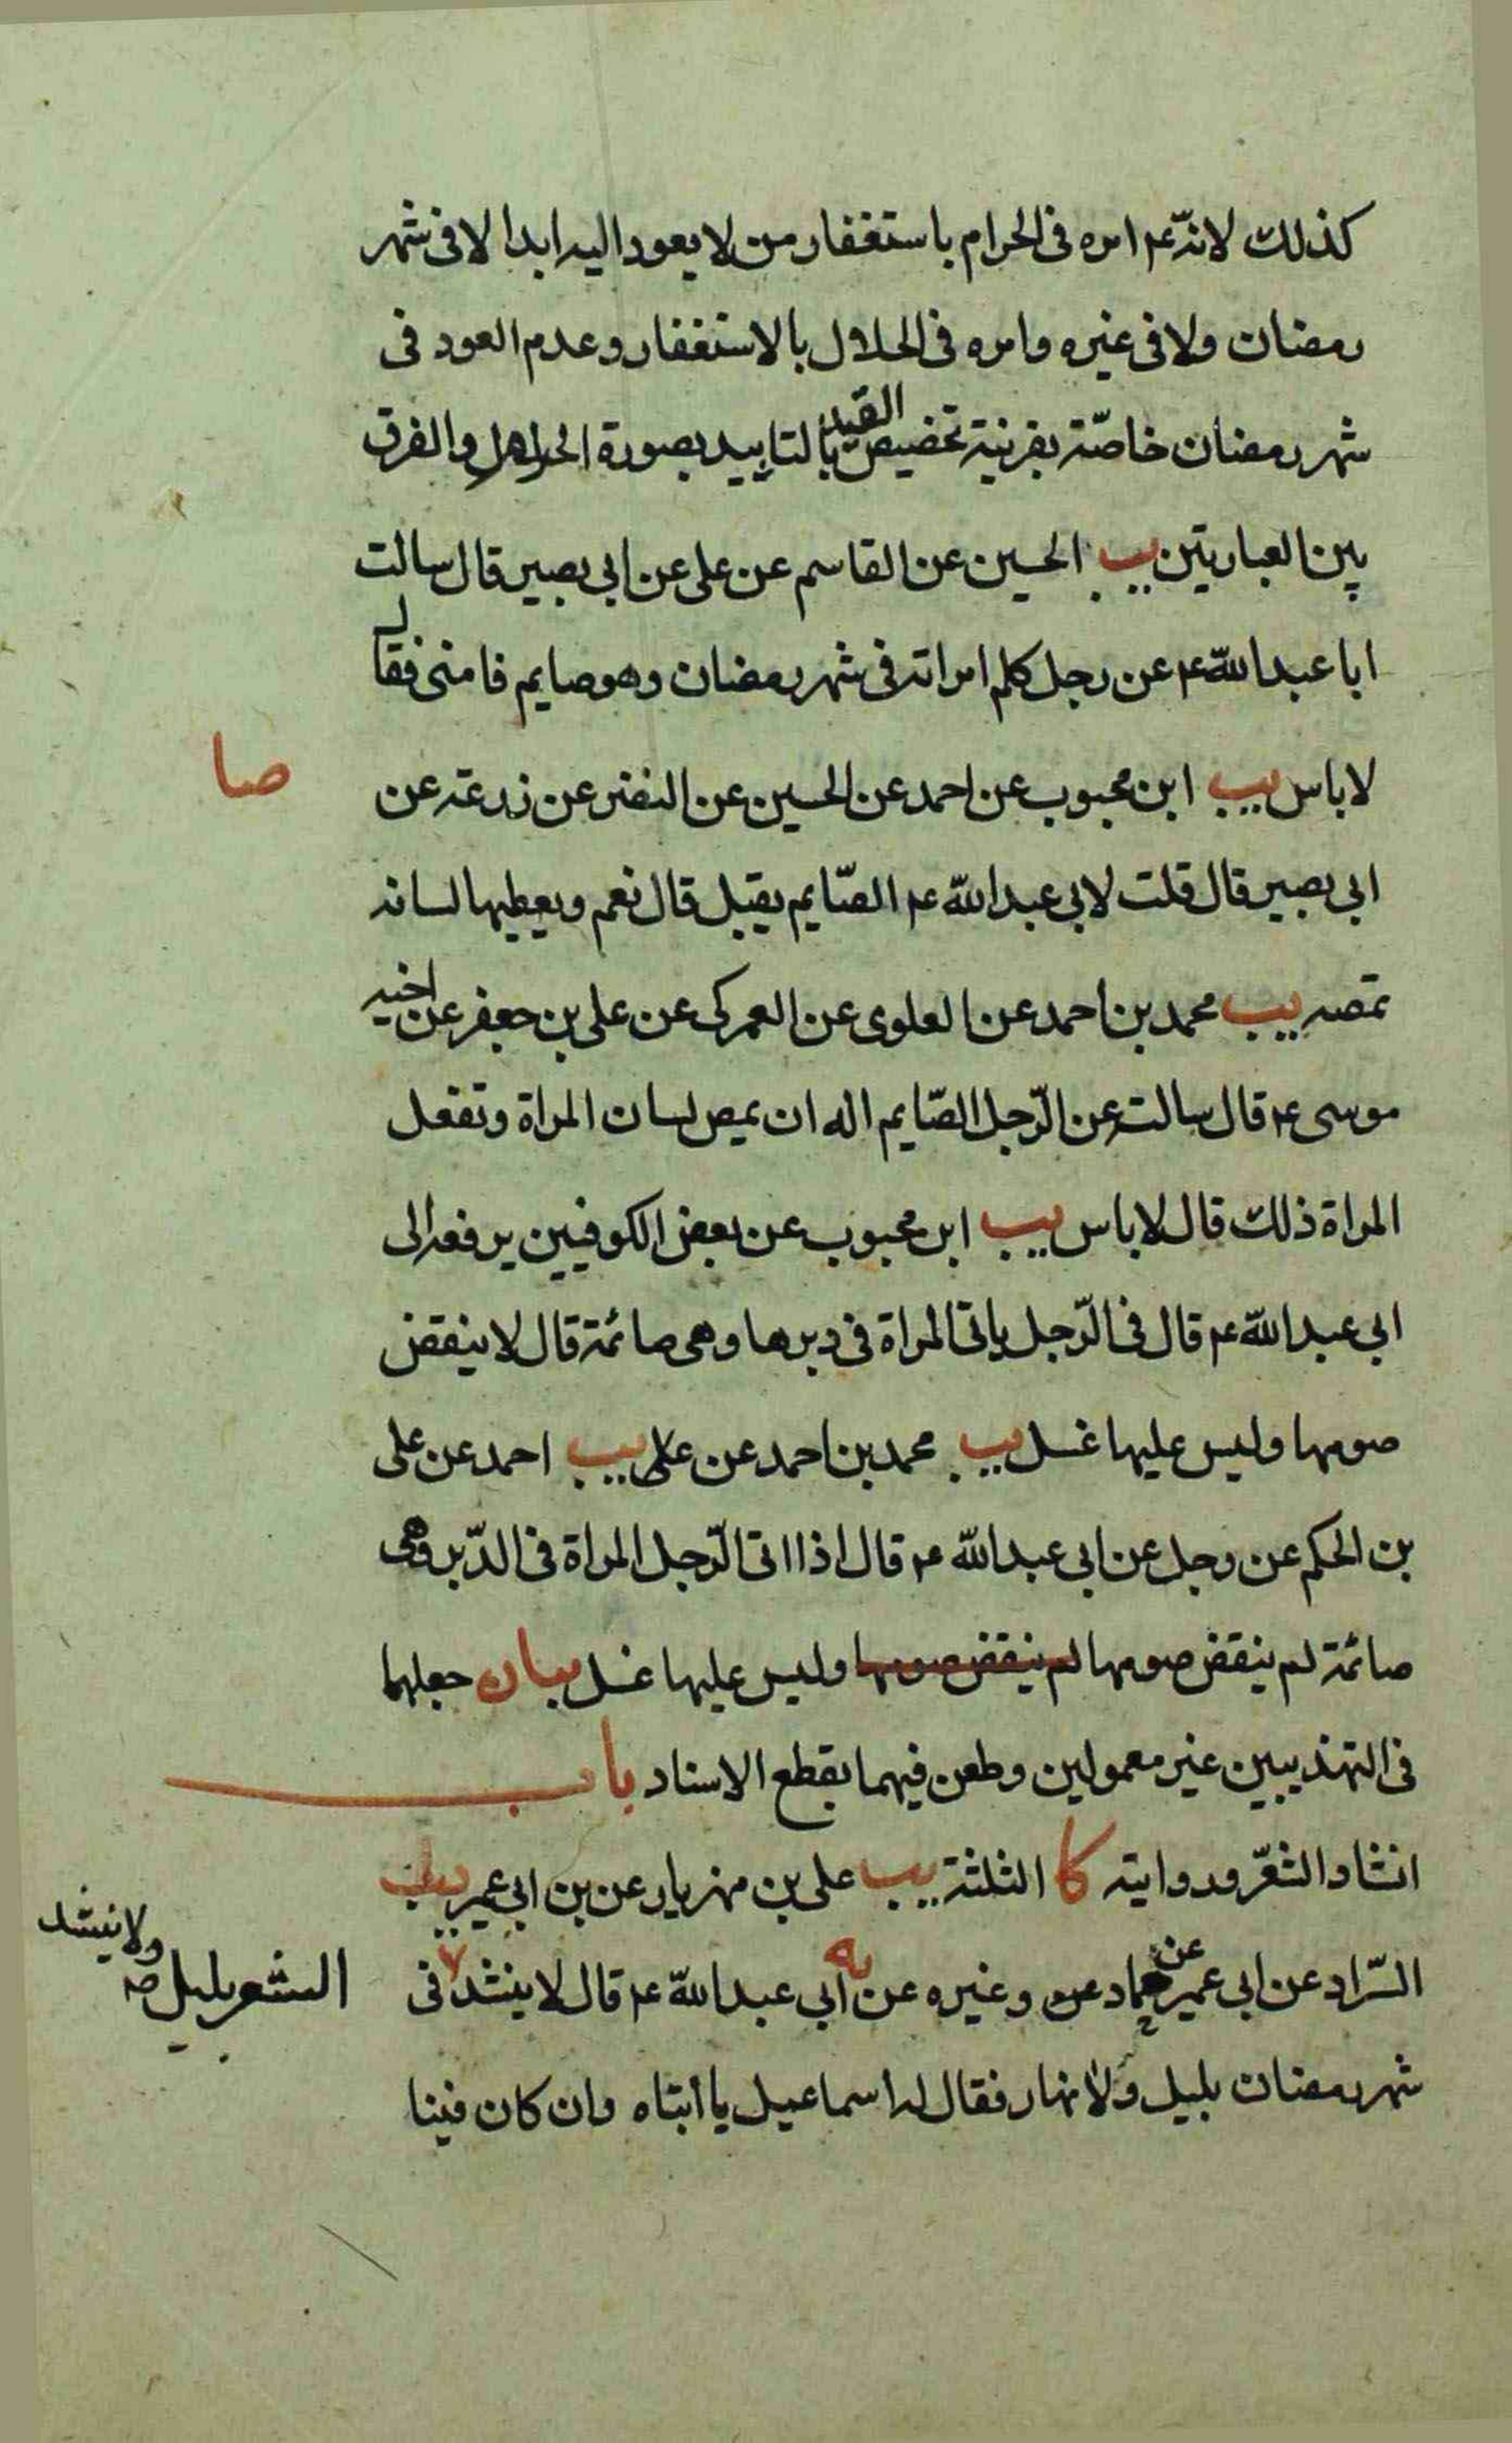 كذلك لانّه ع۲ امره فى الحرام باستغفار من لا يعود اليه ابدا لا فى شهر
رمضان ولا فى غيره وامره فى الحلال بالاستغفار وعدم العود فى
شهر رمضان خاصّة بقرينة تخصيص القيد بالتابيد بصورة الحرام والفرق
بين العبارتين يب الحسين عن القاسم عن على عن ابى بصير قال سالت
ابا عبد اللّه ع۲ عن رجل كلم امراته فى شهر رمضان وهو صايم فامنى فقال
لا باس يب ابن محبوب عن احمد عن الحسين عن النضر عن زرعة عن
صا
ابى بصير قال قلت لابى عبد اللّه ع۲ الصّايم يقبل قال نعم ويعطيها لسانه
تمصه يب محمد بن احمد عن العلوى عن العمركى عن على بن جعفر عن اخيه
موسى ع۲ قال سالته عن الرّجل الصّايم اله ان يمص لسان المراة وتفعل
المراة ذلك قال لا باس يب ابن محبوب عن بعض الكوفيين يرفعه الى
ابى عبد اللّه ع۲ قال فى الرّجل ياتى المراة فى دبرها وهى صائمة قال لا ينقض
صومها وليس عليها غسل يب محمد بن احمد عن على يب احمد عن على
بن الحكم عن رجل عن ابى عبد اللّه ع۲ قال اذا اتى الرّجل المراة فى الدّبر وهى
صائمة لم ينقض صومها لم ينقض صومها وليس عليها غسل بيان جعلهما
فى التهذيبين غير معمولين وطعن فيهما بقطع الاسناد باب
انشاد الشعر وروايته كا الثلثة يب على بن مهزيار عن بن ابى عمير يب
السّراد عن ابى عمير عن حماد وغيره عن ابى عبد اللّه ع۲ قال لا ينشد فى
ولا ينشد
الشعر بليل
شهر رمضان بليل ولا نهار فقال له اسماعيل يا ابتاه وان كان فينا